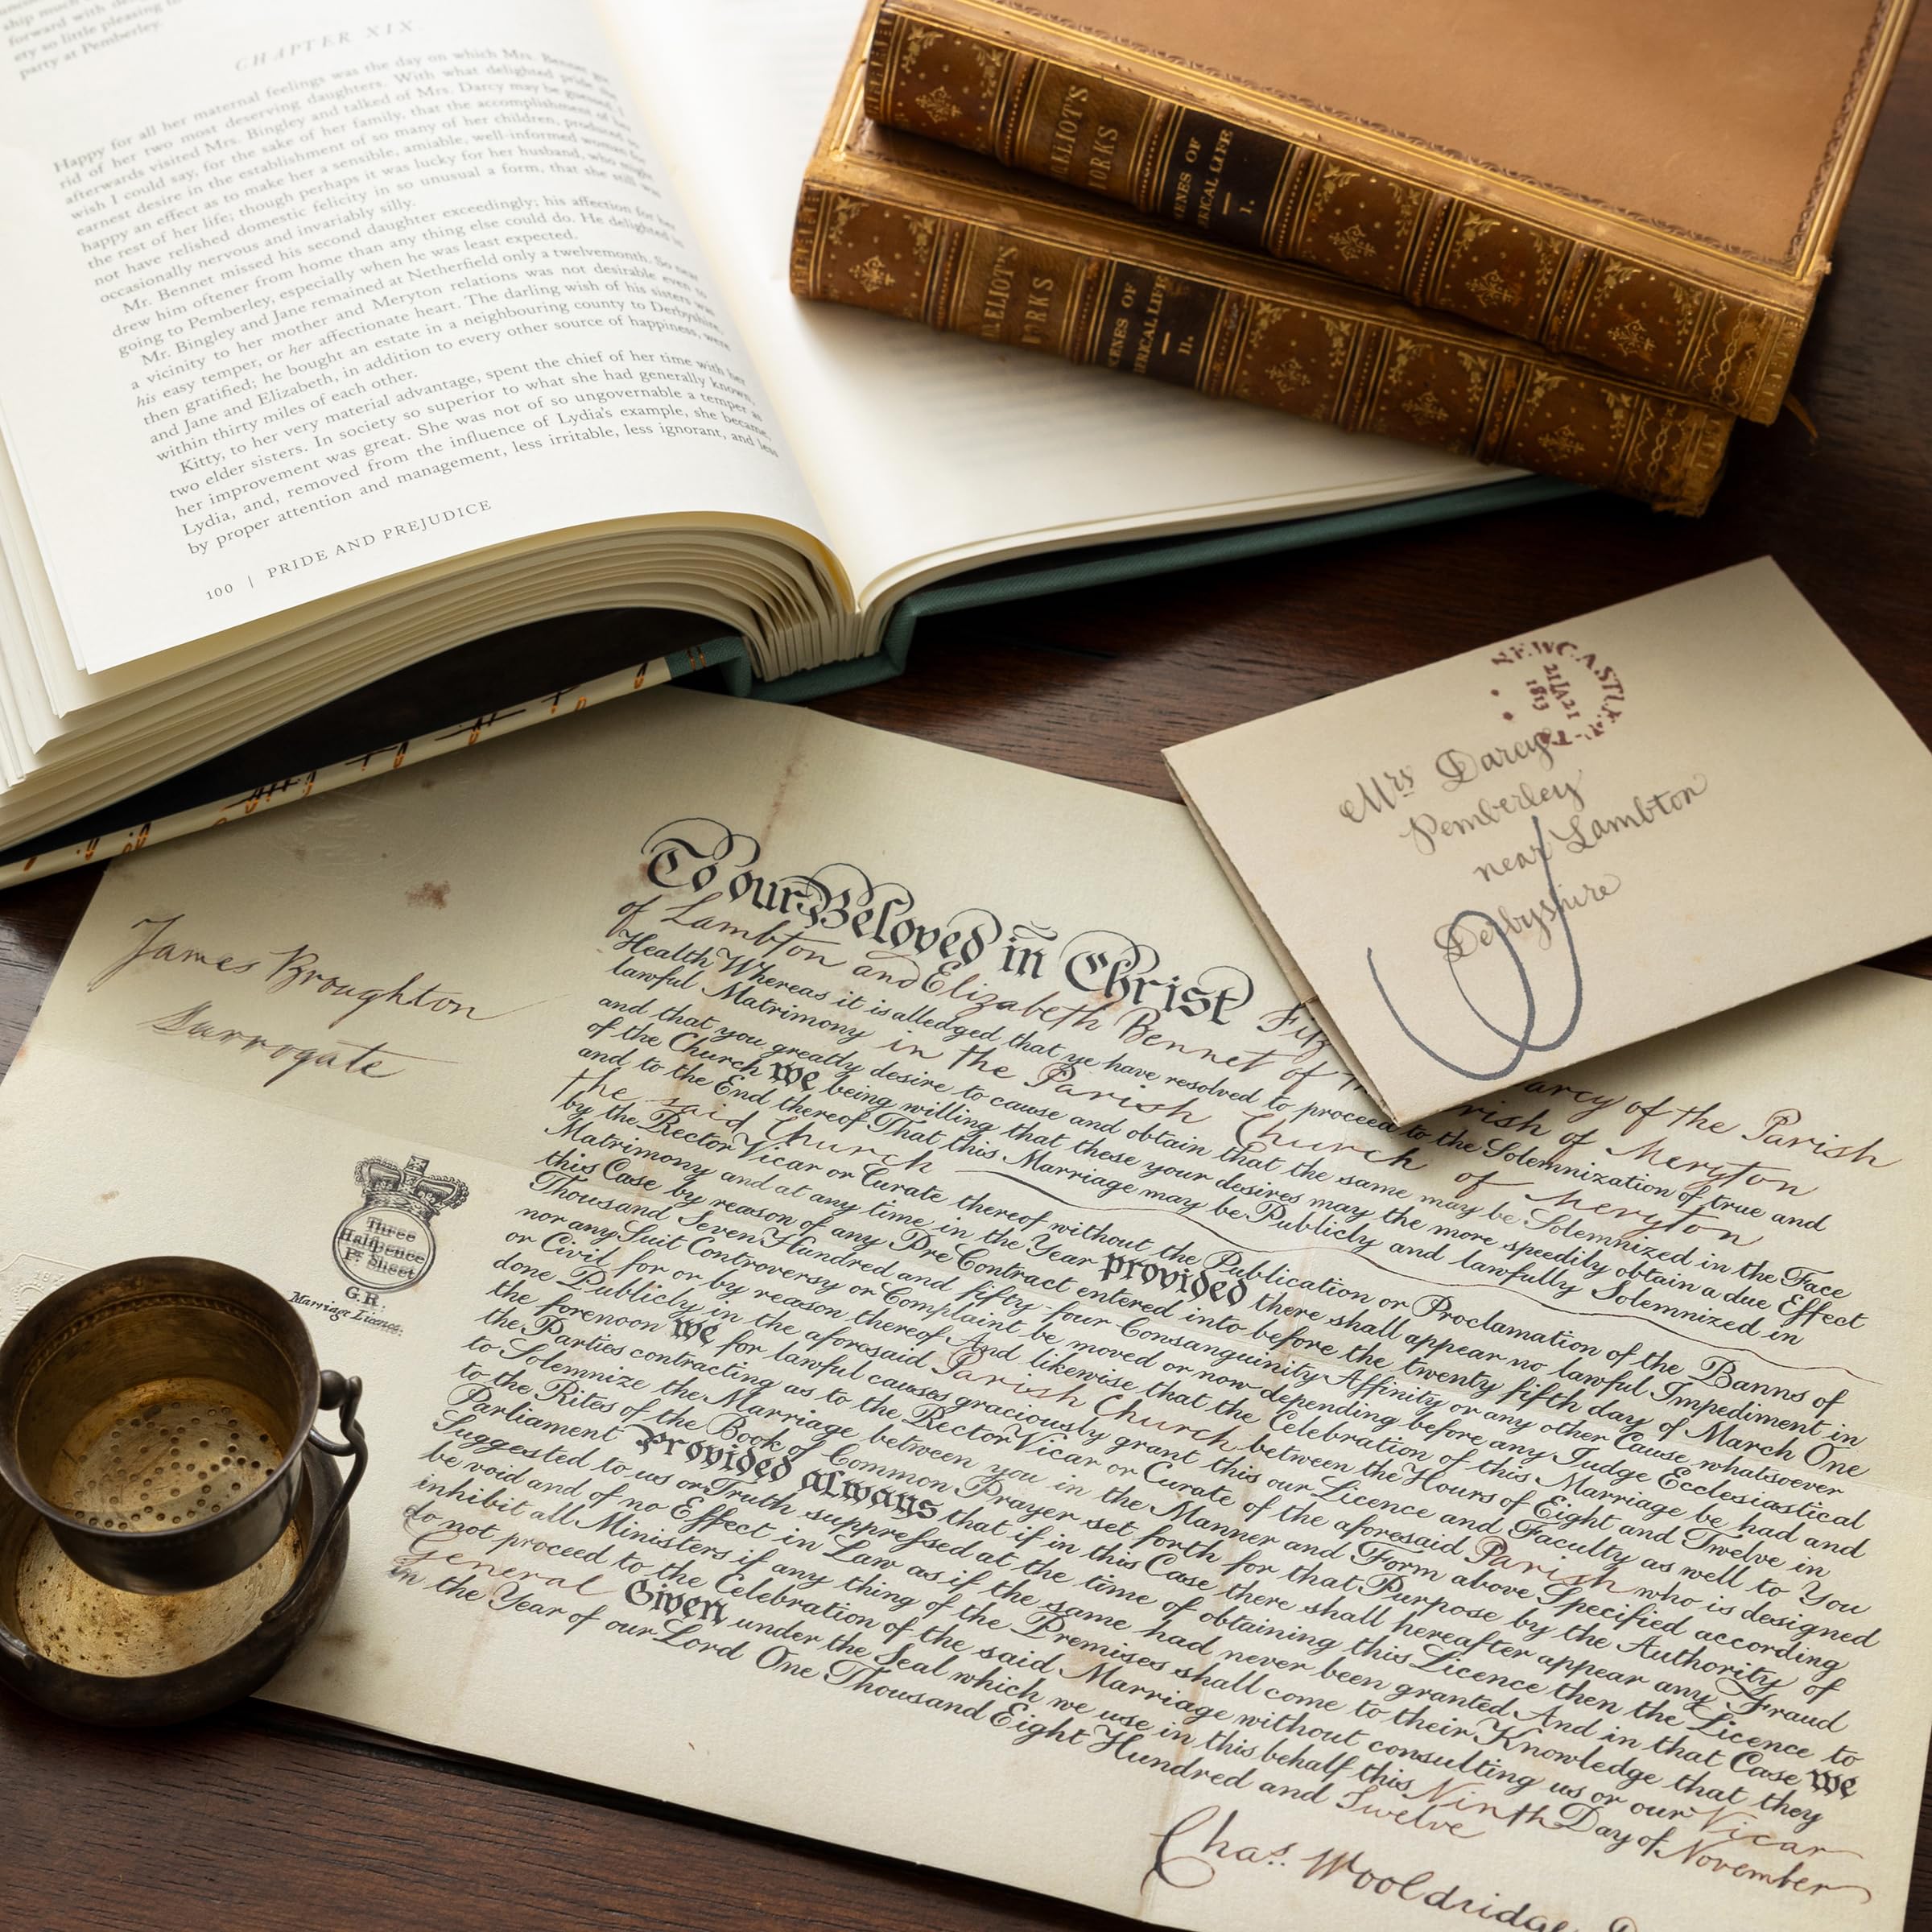 ship much
forward with
ety so little pleasing to
party at Pemberley.
CHAPTER XIX
Happy for all her maternal feelings was the day on which Mrs. Bennet got
rid of her two most deserving daughters. With what delighted pride she
afterwards visited Mrs. Bingley and talked of Mrs. Darcy may be guessed. I
wish I could say, for the sake of her family, that the accomplishment of her
earnest desire in the establishment of so many of her children, produced so
happy an effect as to make her a sensible, amiable, well-informed woman for
the rest of her life; though perhaps it was lucky for her husband, who might
not have relished domestic felicity in so unusual a form, that she still was
occasionally nervous and invariably silly.
Mr. Bennet missed his second daughter exceedingly; his affection for her
drew him oftener from home than any thing else could do. He delighted in
going to Pemberley, especially when he was least expected.
Mr. Bingley and Jane remained at Netherfield only a twelvemonth. So near
a vicinity to her mother and Meryton relations was not desirable even to
his easy temper, or her affectionate heart. The darling wish of his sisters was
then gratified; he bought an estate in a neighbouring county to Derbyshire,
and Jane and Elizabeth, in addition to every other source of happiness, were
within thirty miles of each other.
Kitty, to her very material advantage, spent the chief of her time with her
two elder sisters. In society so superior to what she had generally known,
her improvement was great. She was not of so ungovernable a temper as
Lydia, and, removed from the influence of Lydia's example, she became,
by proper attention and management, less irritable, less ignorant, and less
100 | PRIDE AND PREJUDICE
ELIOT'S
WORKS
ENES OF
ERICAL LIFE
I.
ELIOT'S
WORKS
CENES OF
ERICAL LIFE
II.
NEWCASTLE-T
21JA21
1813
Mrs Darcy
Pemberley
near Lambton
Derbyshire
James Broughton
Surrogate
Three
Halfpence
Pr. Sheet
G.R.
Marriage Licence.
To our Beloved in Christ Fitz arcy of the Parish
of Lambton and Elizabeth Bennet of th rish of Meryton
Health Whereas it is alledged that ye have resolved to proceed to the Solemnization of true and
lawful Matrimony in the Parish Church of Meryton
and that you greatly desire to cause and obtain that the same may be Solemnized in the Face
of the Church We being willing that these your desires may the more speedily obtain a due Effect
and to the End thereof That this Marriage may be Publicly and lawfully Solemnized in
the said Church
by the Rector Vicar or Curate thereof without the Publication or Proclamation of the Banns of
Matrimony and at any time in the Year Provided there shall appear no lawful Impediment in
this Case by reason of any Pre Contract entered into before the twenty fifth day of March One
Thousand Seven Hundred and fifty-four Consanguinity Affinity or any other Cause whatsoever
nor any Suit Controversy or Complaint be moved or now depending before any Judge Ecclesiastical
or Civil for or by reason thereof And likewise that the Celebration of this Marriage be had and
done Publicly in the aforesaid Parish Church between the Hours of Eight and Twelve in
the forenoon We for lawful causes graciously grant this our Licence and Faculty as well to You
the Parties contracting as to the Rector Vicar or Curate of the aforesaid Parish who is designed
to Solemnize the Marriage between you in the Manner and Form above Specified according
to the Rites of the Book of Common Prayer set forth for that Purpose by the Authority of
Parliament Provided always that if in this Case there shall hereafter appear any Fraud
Suggested to us or Truth suppressed at the time of obtaining this Licence then the Licence to
be void and of no Effect in Law as if the same had never been granted And in that Case We
inhibit all Ministers if any thing of the Premises shall come to their Knowledge that they
do not proceed to the Celebration of the said Marriage without consulting us or our Vicar
General Given under the Seal which we use in this behalf this Ninth Day of November
in the Year of our Lord One Thousand Eight Hundred and Twelve
Chas. Wooldridge